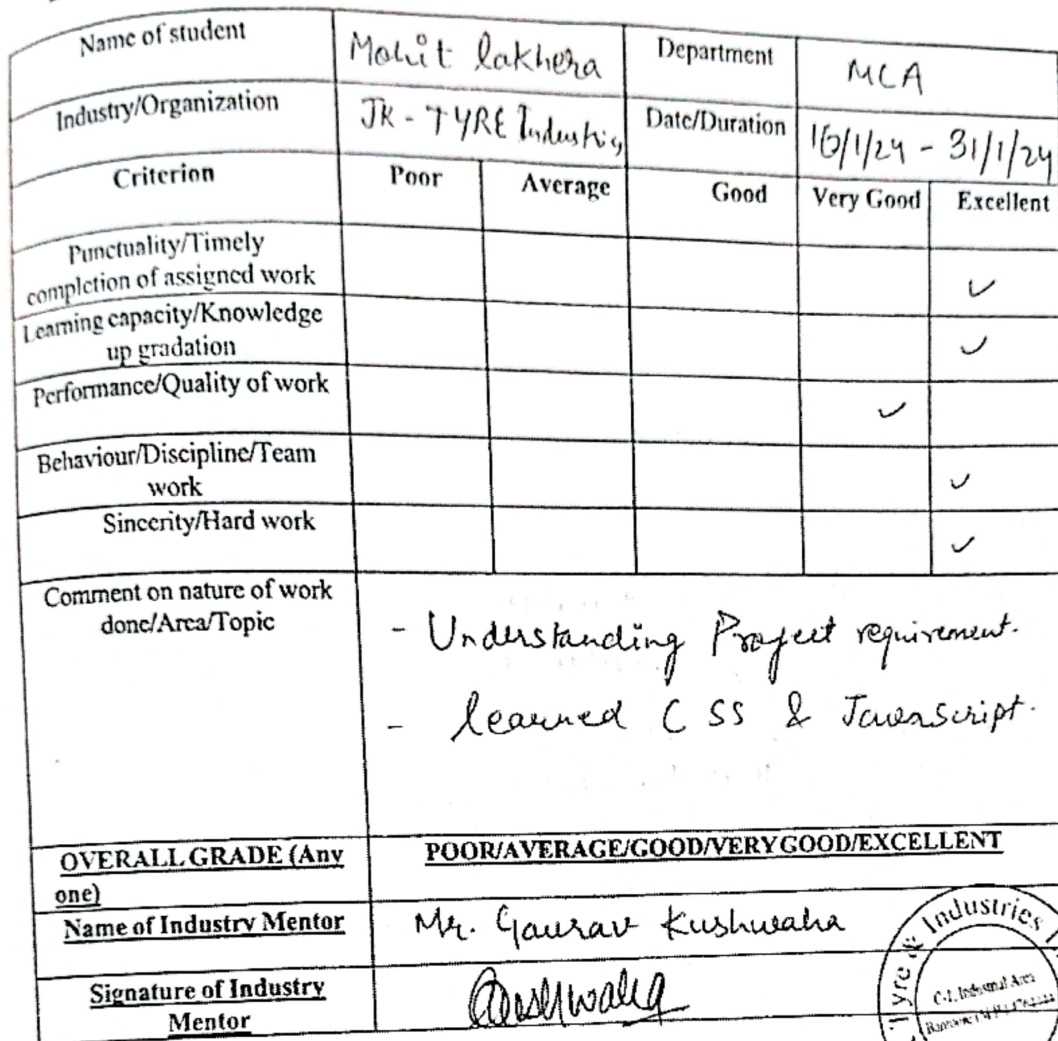 Name of student Mohit lakhera Department MCA
Industry/Organization JK - TYRE Industries Date/Duration 16/1/24 - 31/1/24
Criterion Poor Average Good Very Good Excellent
Punctuality/Timely
completion of assigned work ✓
Learning capacity/Knowledge
up gradation ✓
Performance/Quality of work ✓
Behaviour/Discipline/Team
work ✓
Sincerity/Hard work ✓
Comment on nature of work
done/Area/Topic
- Understanding Project requirement.
- learned CSS & JavaScript.
OVERALL GRADE (Any
one)
POOR/AVERAGE/GOOD/VERY GOOD/EXCELLENT
Name of Industry Mentor Mr. Gaurav Kushwaha
Signature of Industry
Mentor
Tyre & Industries
C-1, Industrial Area